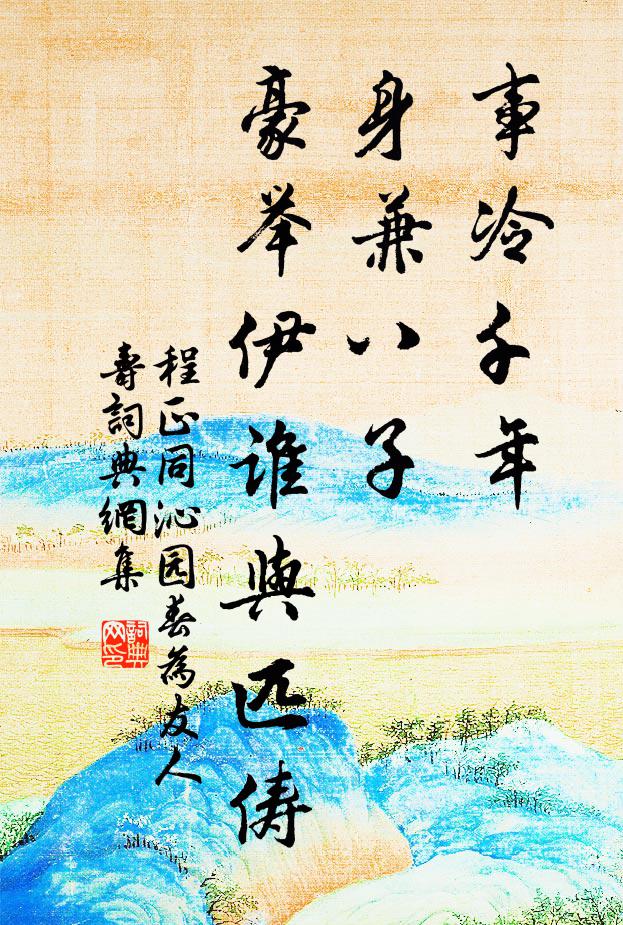 事冷千年
身兼八子
豪举伊谁與匹俦
程正同沁园春為友人
壽詞典網集
詞典
网印